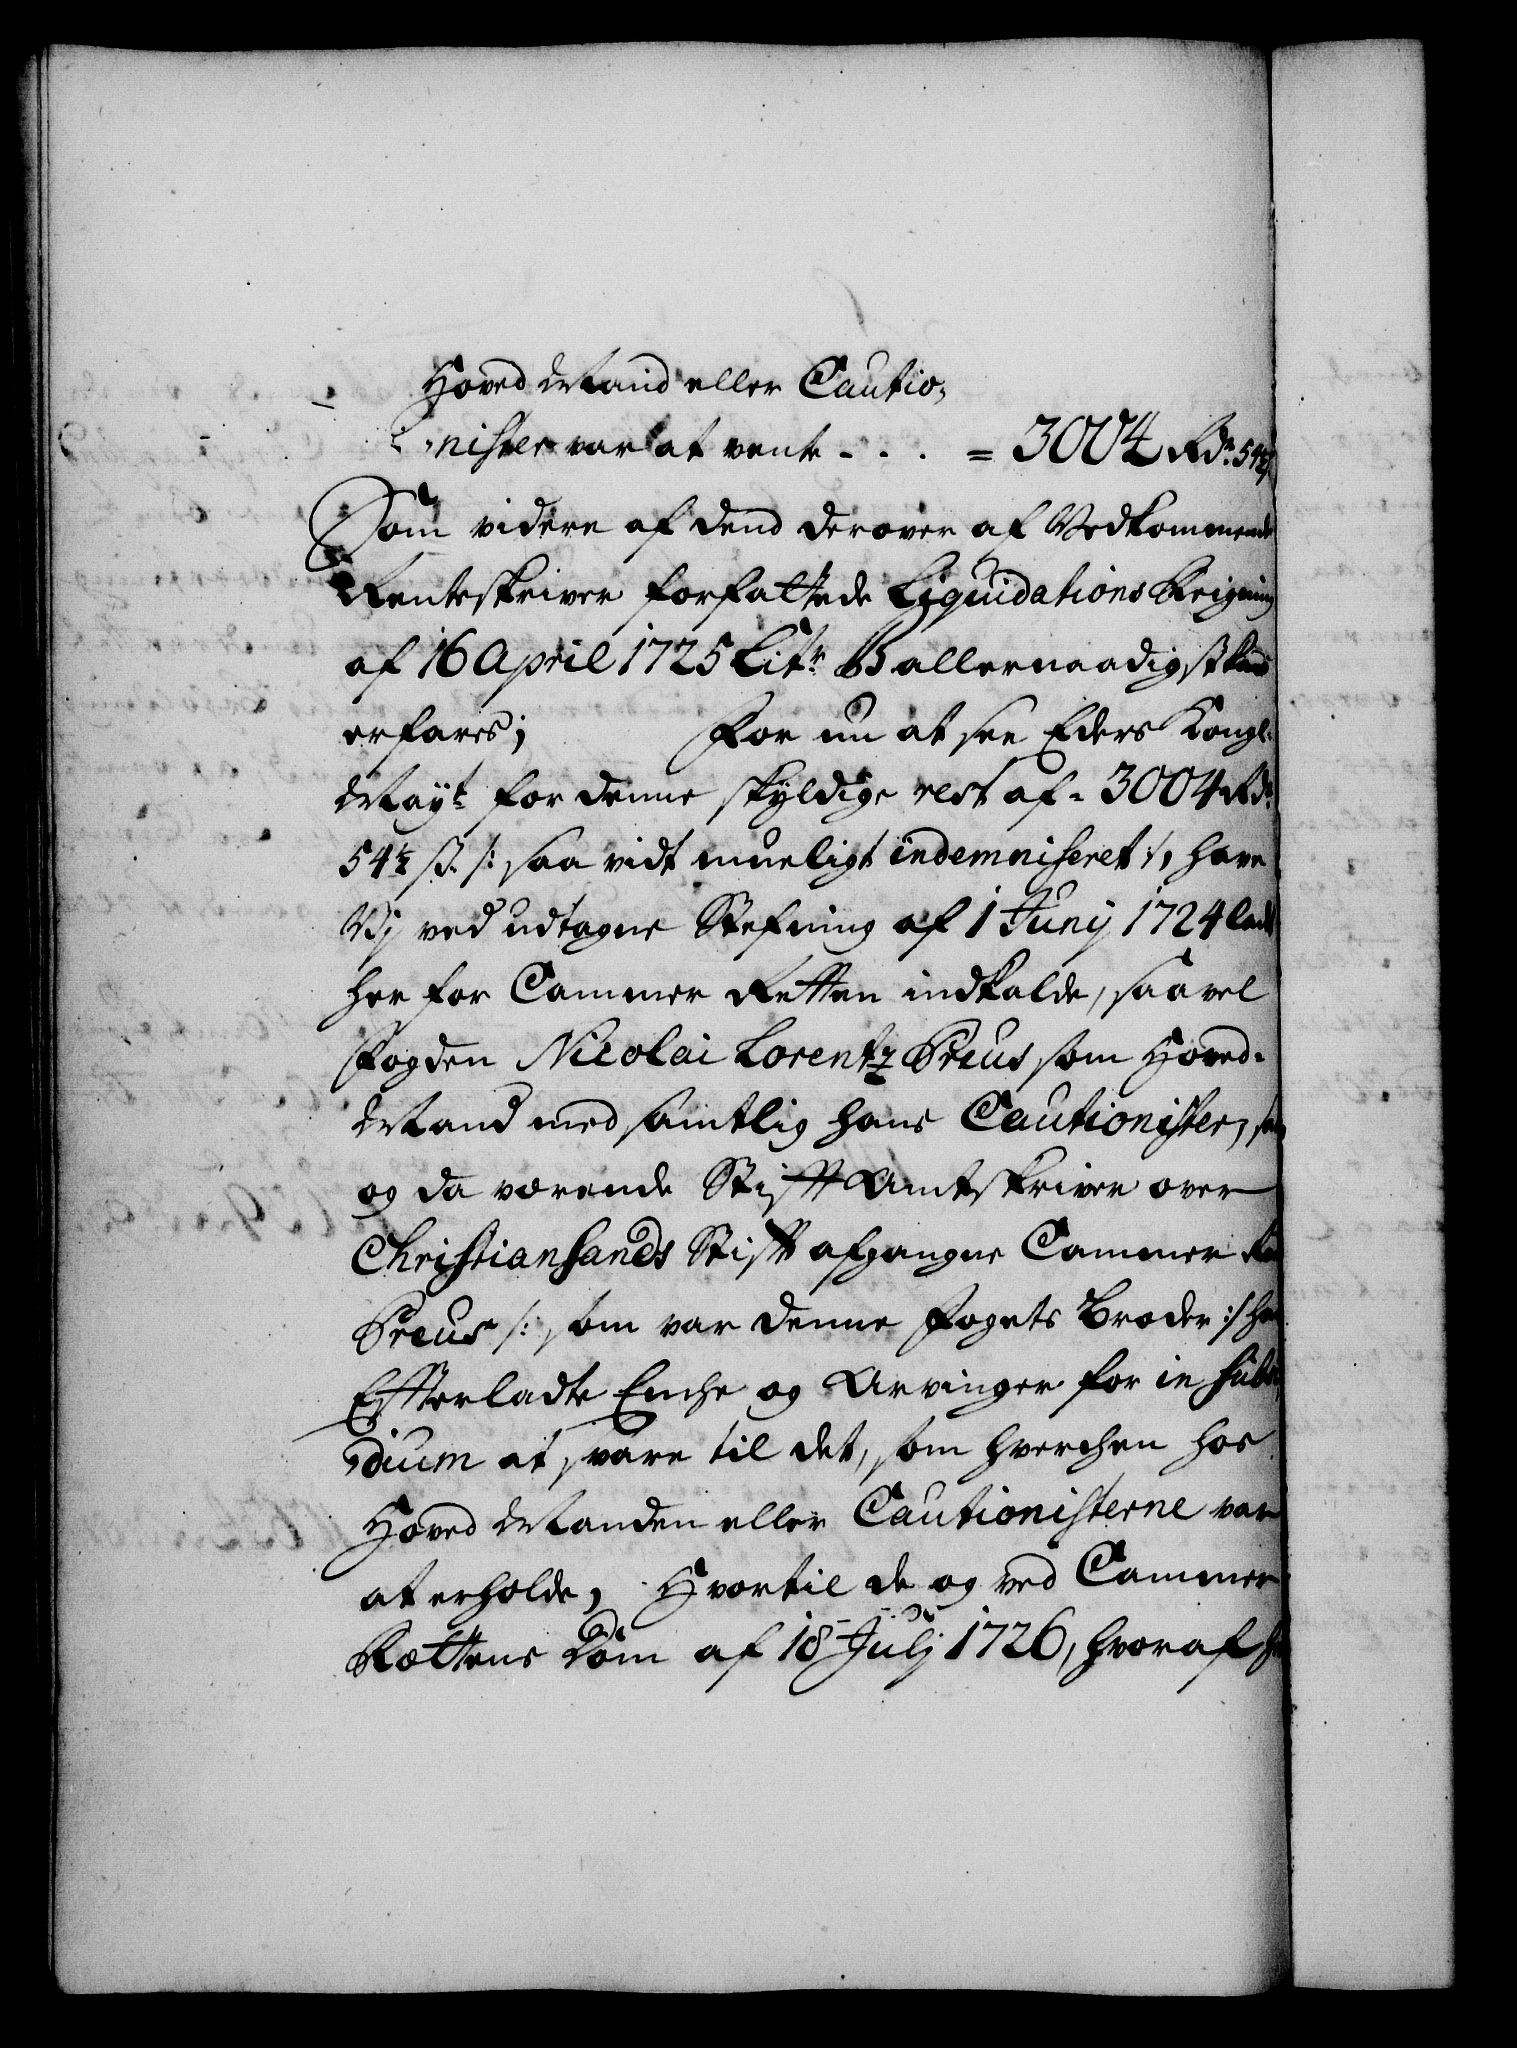 Hoved Mand eller Cautio,
,nister var at vente - . . . = 3004 Rdr. 54½
Som videre af dend derover af Vedkommende
Renteskriver forfattede Liquidations Reigning
af 16 April 1725 Litr B allernaadigst kand
erfares; For nu at see Eders Kongl.
Mayt. for denne skyldige rest af = 3004 Rdr.
54½ ß. /: saa vidt mueligt indemniseret :/, have
Vi ved udtagne Stefning af 1 Junij 1724 ladt
her for Cammer Retten indkalde, saavel
Fogden Nicolai Lorentz Preus som Hoved-
Mand med samtlig hans Cautionister, som
og da værende Stifft Amtskriver over
Christiansands Stifft afgangne Cammer Raad
Preus /: som var denne Fogets Broder :/ hans
Effterladte Enche og Arvinger for in subsi,
,dium at svare til det, som hverchen hos
Hoved Manden eller Cautionisterne var
at erholde, Hvortil de og ved Cammer
Rættens Dom af 18 Julj 1726, hvoraf